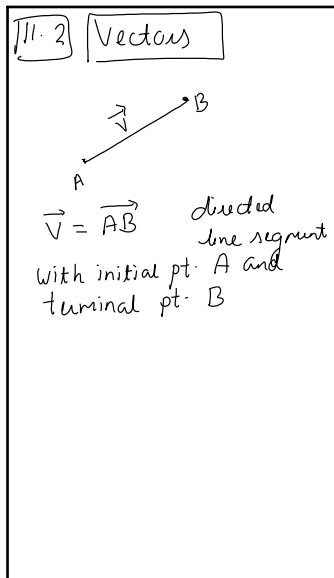 11.2 Vectors
B
V
A
V = AB directed
line segment
with initial pt. A and
terminal pt. B